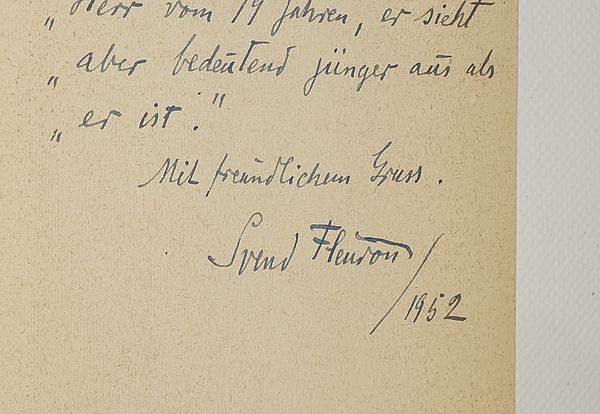 „Herr vom 79 Jahren, er sieht
„aber bedeutend jünger aus als
„er ist."
Mit freundlichem Gruss.
Svend Fleuron/
1952